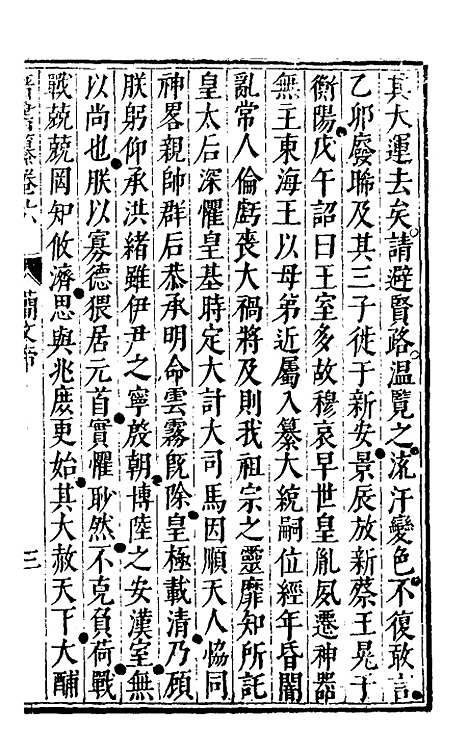 其大運去矣請避賢路温覧之流汗變色不復敢言
乙卯廢晞及其三子徙于新安景辰放新蔡王晃于
衡陽戊午詔曰王室多故穆哀早世皇胤夙遷神器
無主東海王以母弟近屬入纂大統嗣位經年昏闇
亂常人倫虧喪大禍將及則我祖宗之靈靡知所託
皇太后深懼皇基時定大計大司馬因順天人恊同
神畧親帥群后恭承明命雲霧旣除皇極載清乃顧
朕躬仰承洪緒雖伊尹之寧殷朝博陸之安漢室無
以尚也朕以寡德猥居元首實懼眇然不克負荷戰
戰兢兢罔知攸濟思與兆庶更始其大赦天下大酺
卷六 簡文帝 三